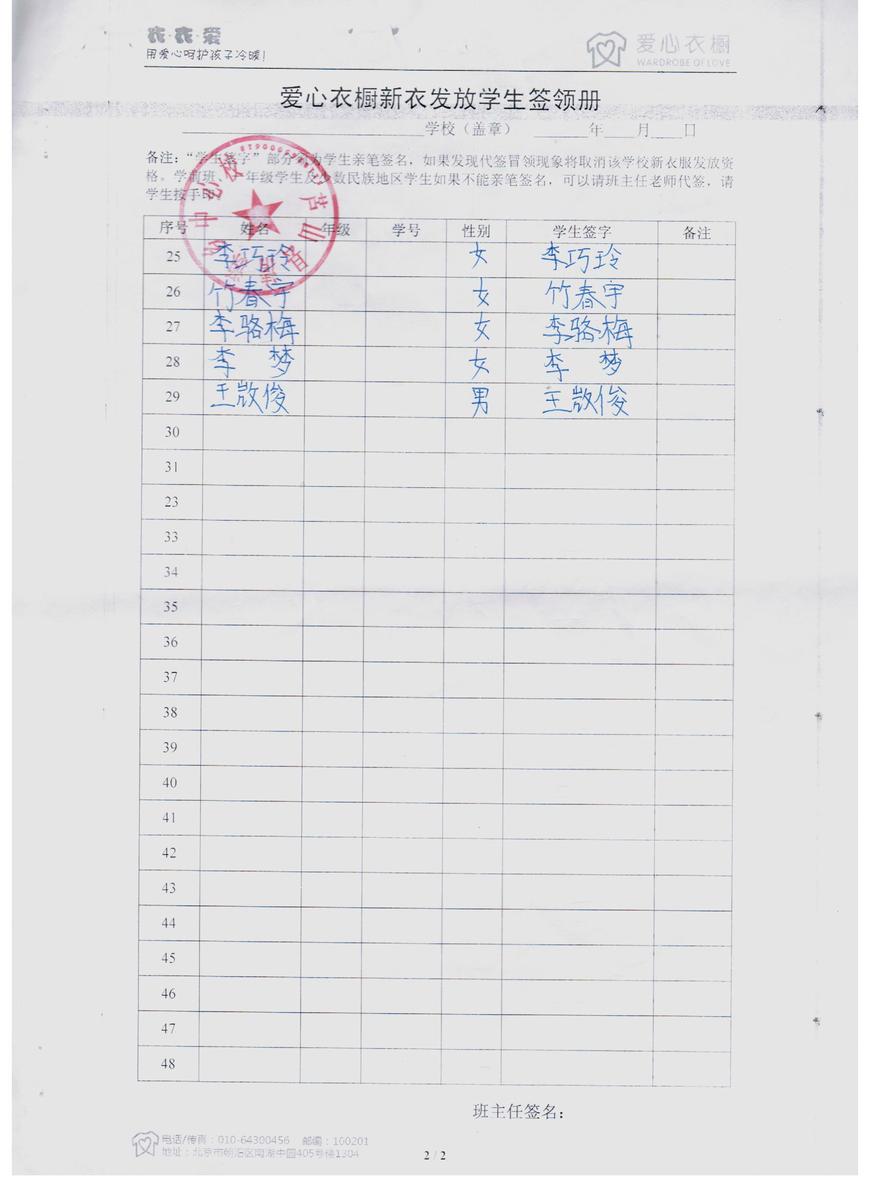 衣·衣·爱
用爱心呵护孩子冷暖!
爱心衣橱
WARDROBE OF LOVE
爱心衣橱新衣发放学生签领册
学校（盖章） 年 月 日
备注：“学生签字”部分须为学生亲笔签名，如果发现代签冒领现象将取消该学校新衣服发放资
格。学前班、一年级学生及少数民族地区学生如果不能亲笔签名，可以请班主任老师代签，请
学生按手印。
序号 姓名 年级 学号 性别 学生签字 备注
25 李巧玲 女 李巧玲
26 竹春宇 女 竹春宇
27 李骆梅 女 李骆梅
28 李 梦 女 李 梦
29 王敳俊 男 王敳俊
30
31
23
33
34
35
36
37
38
39
40
41
42
43
44
45
46
47
48
班主任签名：
电话/传真：010-64300456 邮编：100201
地址：北京市朝阳区南湖中园405号楼1304
2 / 2